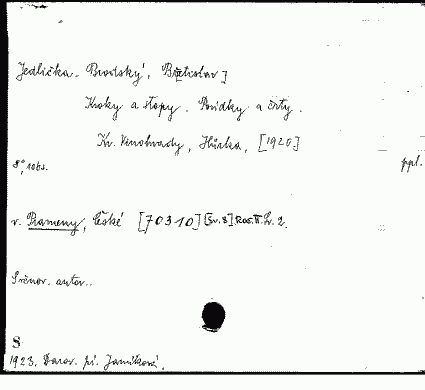 Jedlička-Brodský, Břetislav]
Kroky a stopy. Povídky a črty.
Kr. Vinohrady, Hůrka, [1920]
8°, 1 obs. ppl.
v. Prameny, České [70310] [sv. 8] Roč. II. Sv. 2.
Srovn. autor..
S
1923. Darov. pí. Janíková.